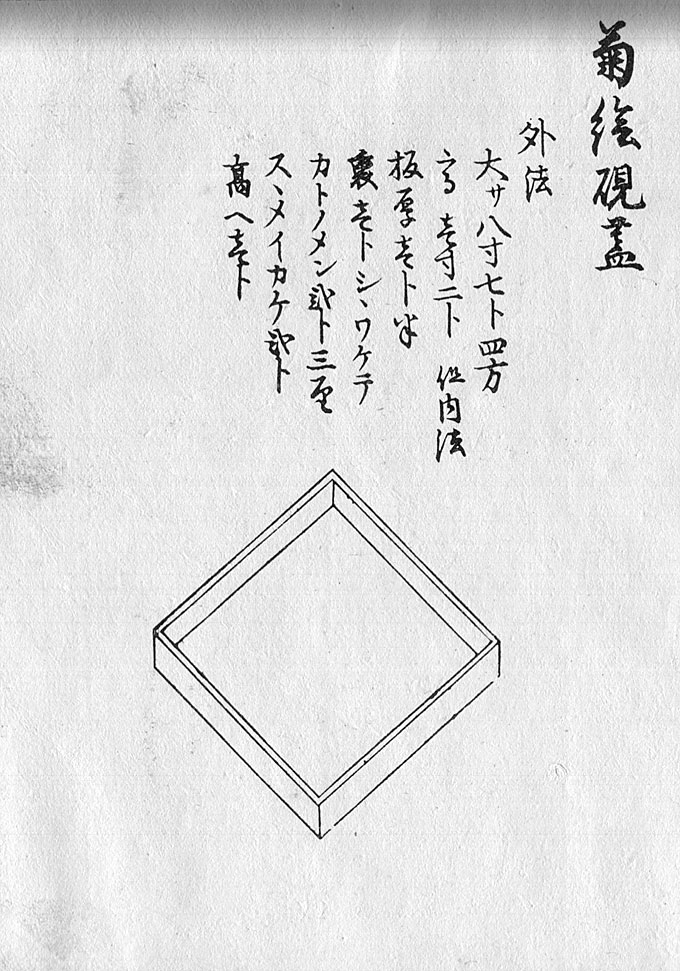 菊絵硯蓋
外法
大サ八寸七ト四方
高壱寸二ト 但内法
板厚壱ト半
裏壱トシヽワケテ
カトノメン弐ト三厘
スヽメイカケ弐ト
高ヘ壱ト